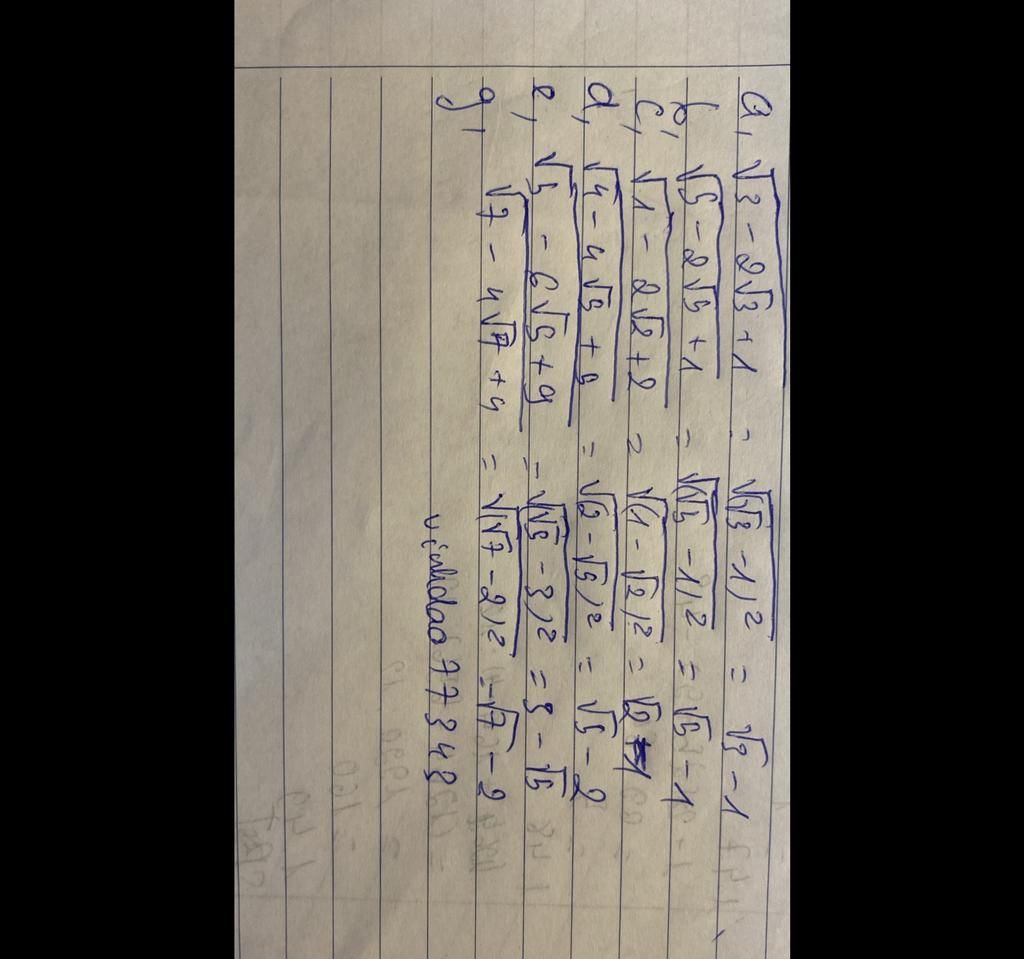 a, √3 - 2√3 + 1 = √(√3 - 1)² = √3 - 1
b, √5 - 2√5 + 1 = √(√5 - 1)² = √5 - 1
c, √1 - 2√2 + 2 = √(1 - √2)² = √2 - 1
d, √4 - 4√5 + 5 = √(2 - √5)² = √5 - 2
e, √5 - 6√5 + 9 = √(√5 - 3)² = 3 - √5
g, √7 - 4√7 + 4 = √(√7 - 2)² = √7 - 2